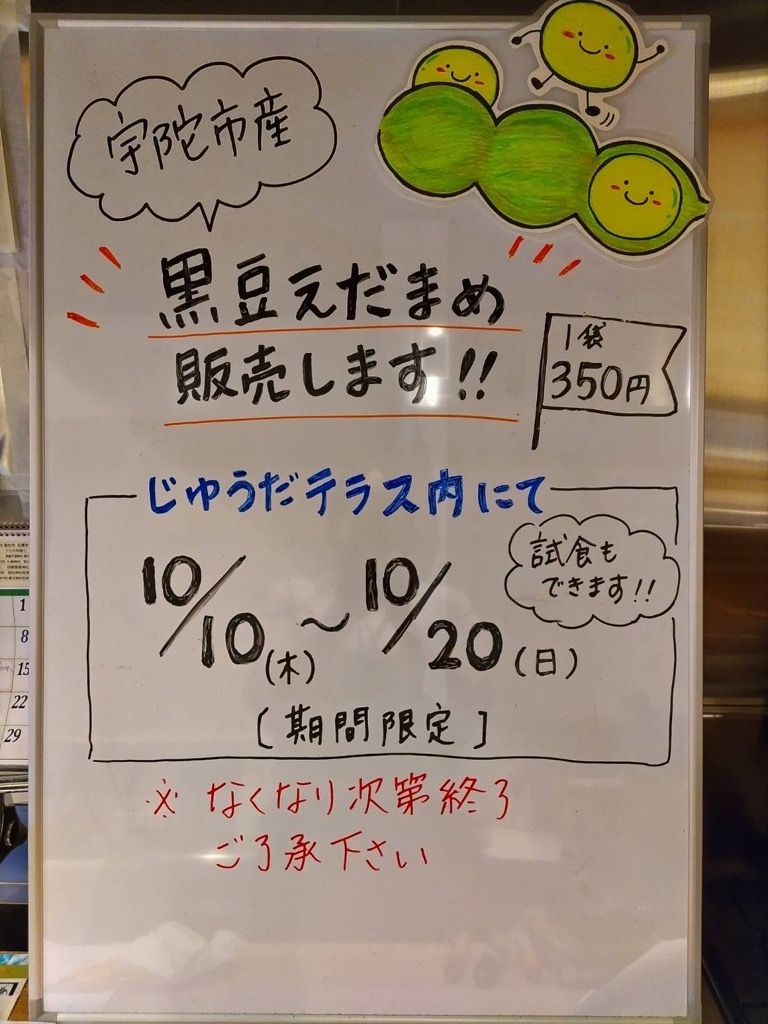 宇陀市産
黒豆えだまめ
販売します!!
1袋
350円
じゅうだテラス内にて
10/10(木)～10/20(日)
試食も
できます!!
[期間限定]
※なくなり次第終了
ご了承下さい
1
8
15
22
29